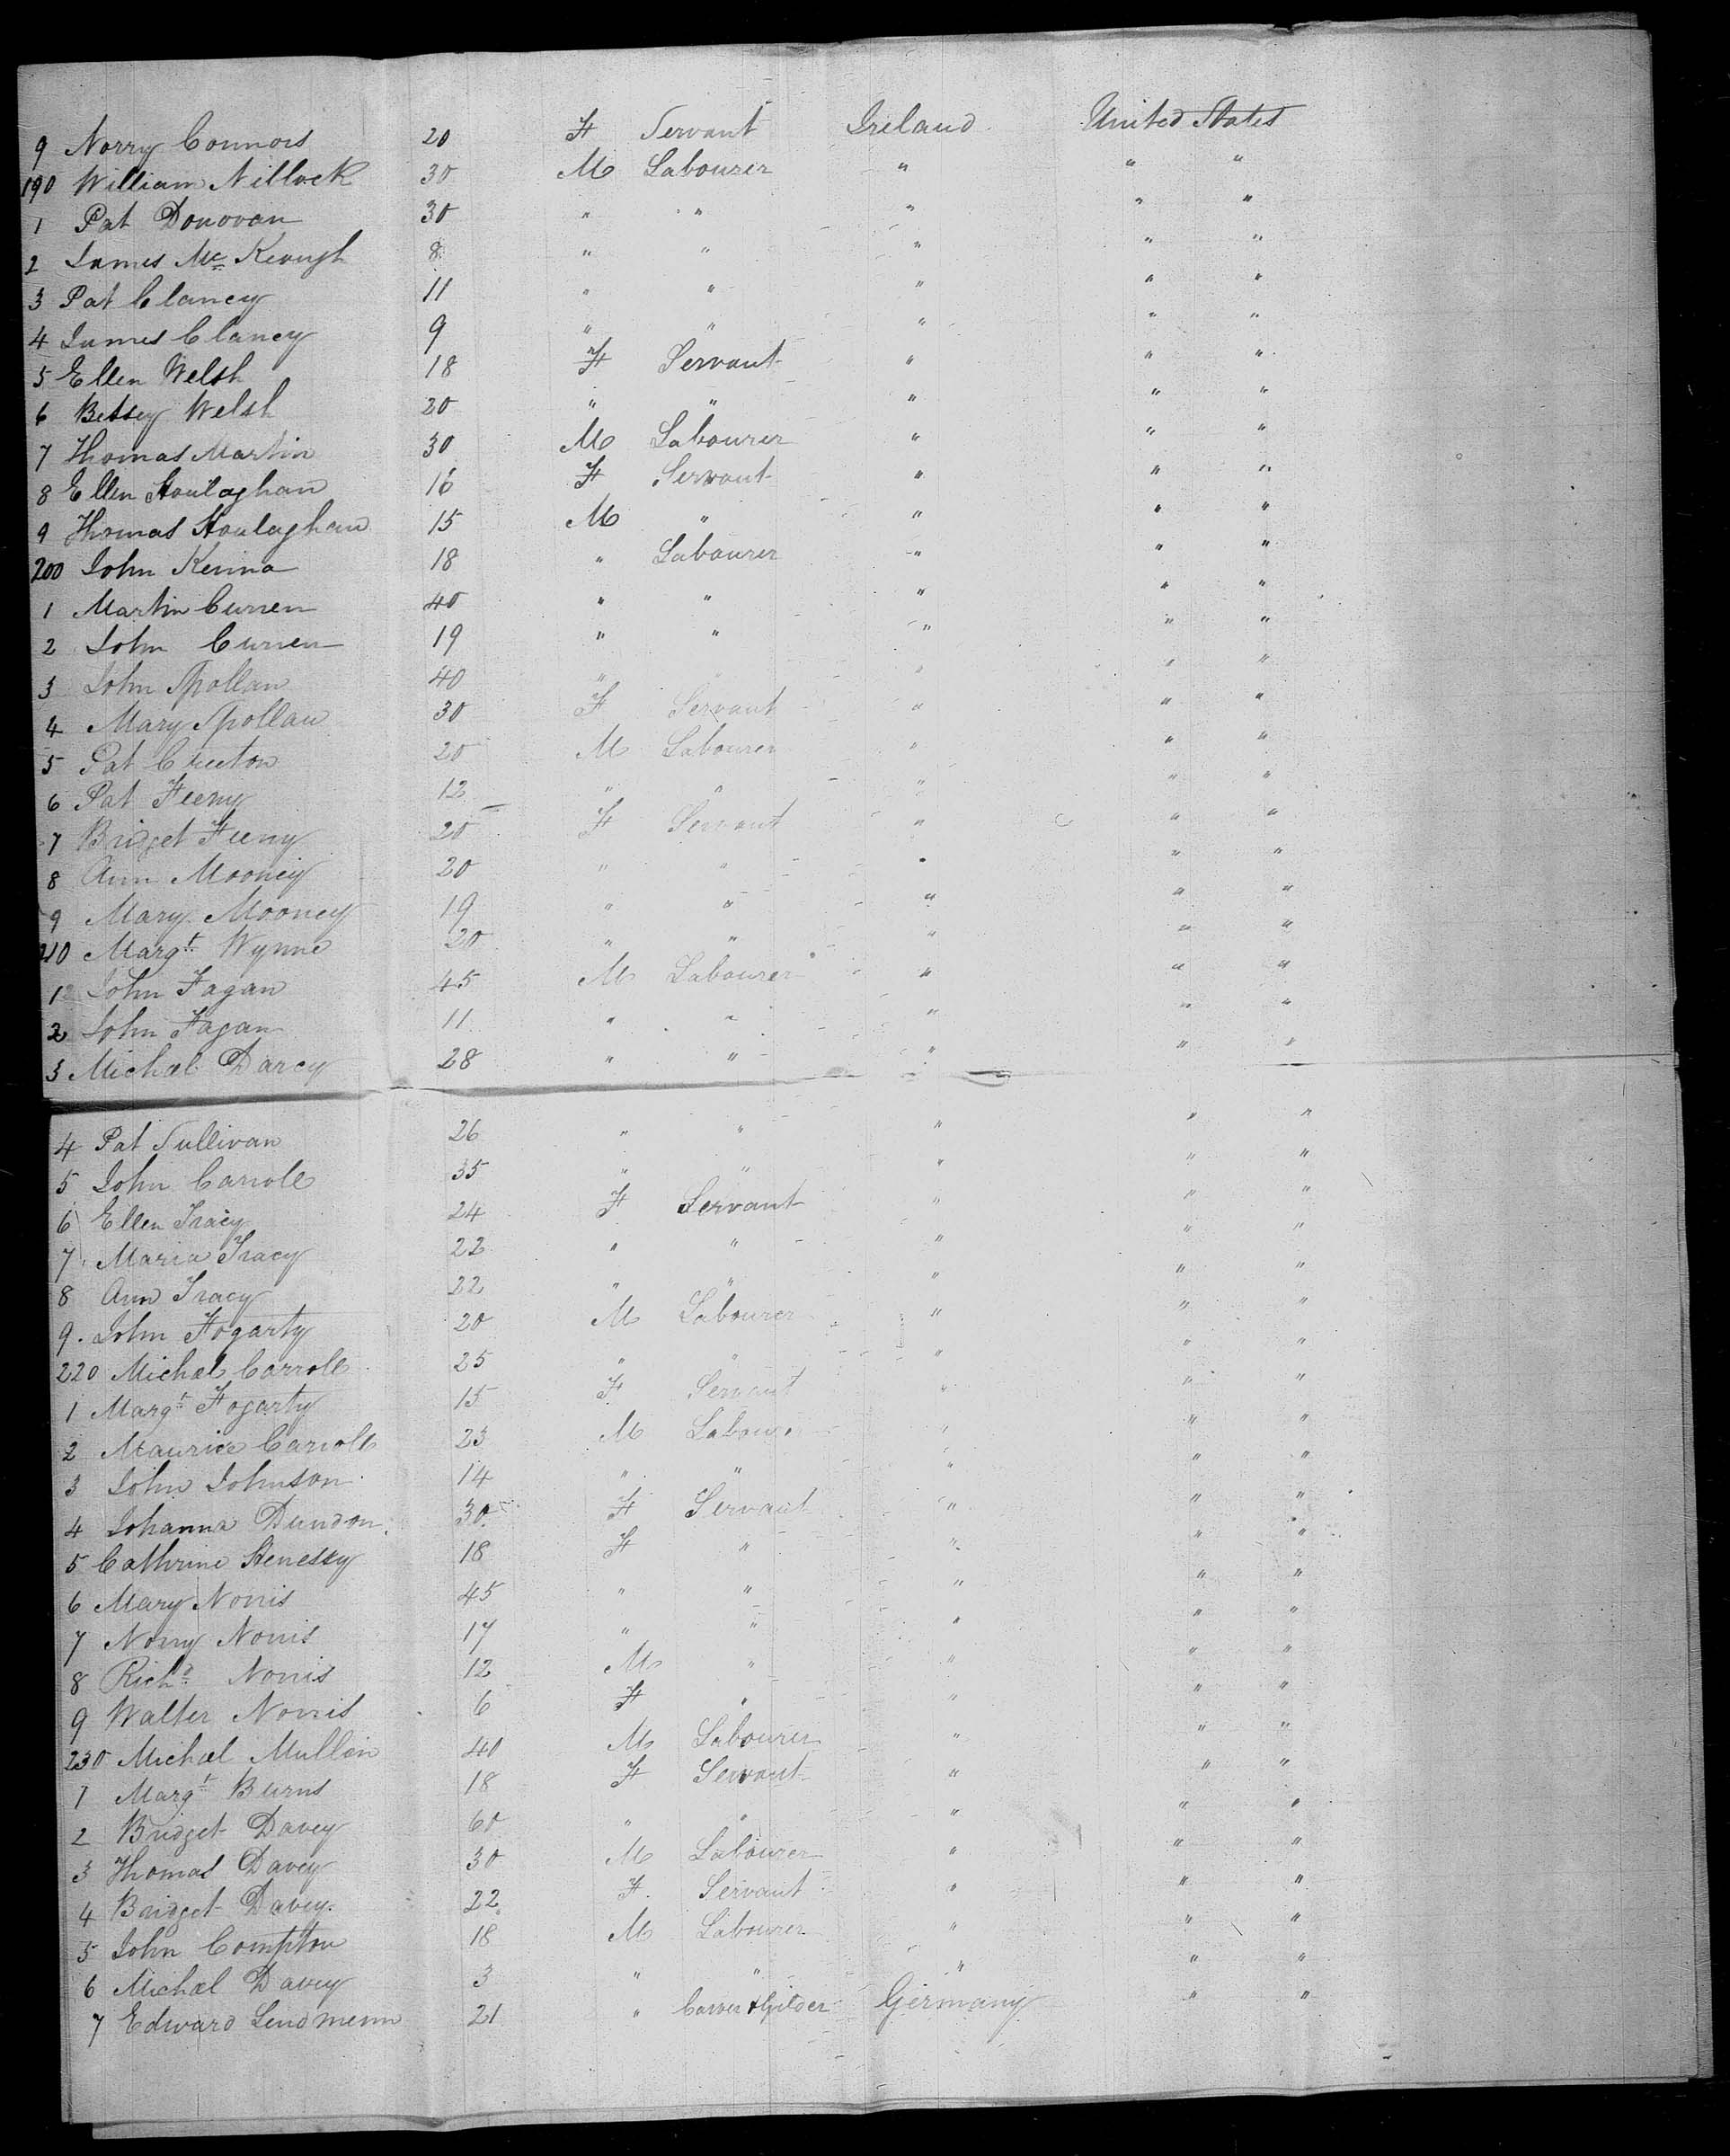 9 Norry Connors 20 F Servant Ireland United States
190 William Nillock 30 M Labourer " " "
1 Pat Donovan 30 " " " " "
2 James Mc Keough 8 " " " " "
3 Pat Clancy 11 " " " " "
4 James Clancy 9 " " " " "
5 Ellen Welsh 18 F Servant " " "
6 Betsey Welsh 20 " " " " "
7 Thomas Martin 30 M Labourer " " "
8 Ellen Houlaghan 16 F Servant " " "
9 Thomas Houlaghan 15 M " " " "
200 John Kenna 18 " Labourer " " "
1 Martin Curren 40 " " " " "
2 John Curren 19 " " " " "
3 John Spollan 40 " " " " "
4 Mary Spollan 30 F Servant " " "
5 Pat 20 M Labourer " " "
6 Pat Feeny 12 " " " " "
7 Bridget Feeny 20 F Servant " " "
8 Ann Mooney 20 " " " " "
9 Mary Mooney 19 " " " " "
210 Margt Wynne 20 " " " " "
1 John Fagan 45 M Labourer " " "
2 John Fagan 11 " " " " "
3 Michael Darcy 28 " " " " "
4 Pat Sullivan 26 " " " " "
5 John Carroll 35 " " " " "
6 Ellen Tracy 24 F Servant " " "
7 Maria Tracy 22 " " " " "
8 Ann Tracy 22 " " " " "
9. John Fogarty 20 M Labourer " " "
220 Michael Carroll 25 " " " " "
1 Margt Fogarty 15 F Servant " " "
2 Maurice Carroll 23 M Labourer " " "
3 John Johnson 14 " " " " "
4 Johanna Dundon 30 F Servant " " "
5 Cathrine Henessy 18 F " " " "
6 Mary Norris 45 " " " " "
7 Norry Norris 17 " " " " "
8 Richd Norris 12 M " " " "
9 Walter Norris 6 F " " " "
230 Michael Mullin 40 M Labourer " " "
1 Margt Burns 18 F Servant " " "
2 Bridget Davey 60 " " " " "
3 Thomas Davey 30 M Labourer " " "
4 Bridget Davey. 22 F. Servant " " "
5 John Compton 18 M Labourer " " "
6 Michael Davey 3 " " " " "
7 Edward Lindmenn 21 " Carver & Gilder Germany " "